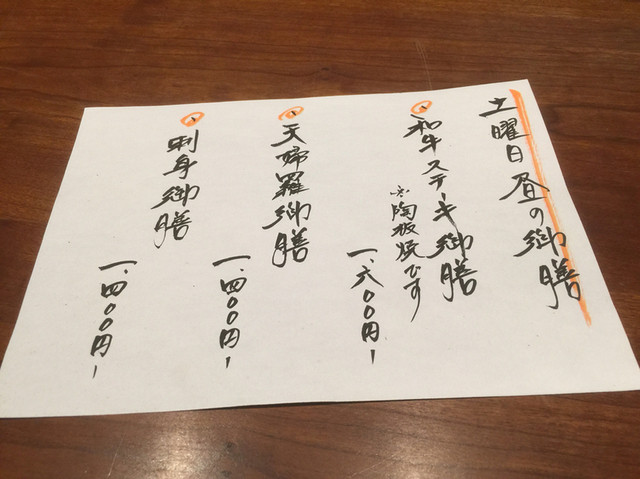 土曜日昼の御膳
、和牛ステーキ御膳
※陶板焼です
一、六〇〇円ー
、天婦羅御膳
一、四〇〇円ー
、刺身御膳
一、四〇〇円ー